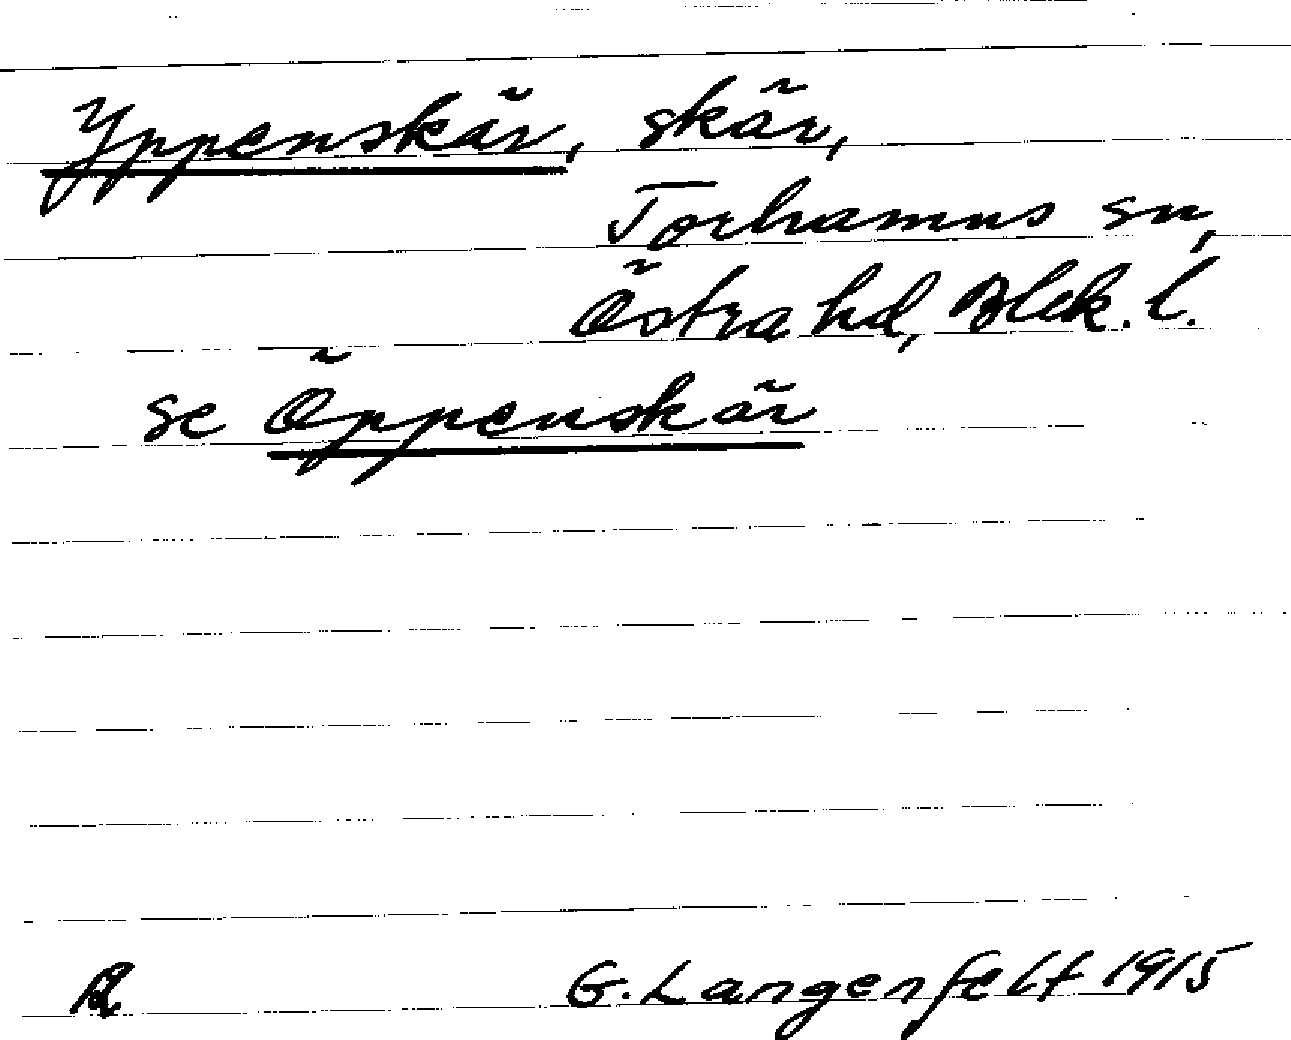 Yppenskär, skär,
Torhamns sn,
Östra hd, Blek. l.
se Öppenskär
G. Langenfelt 1915